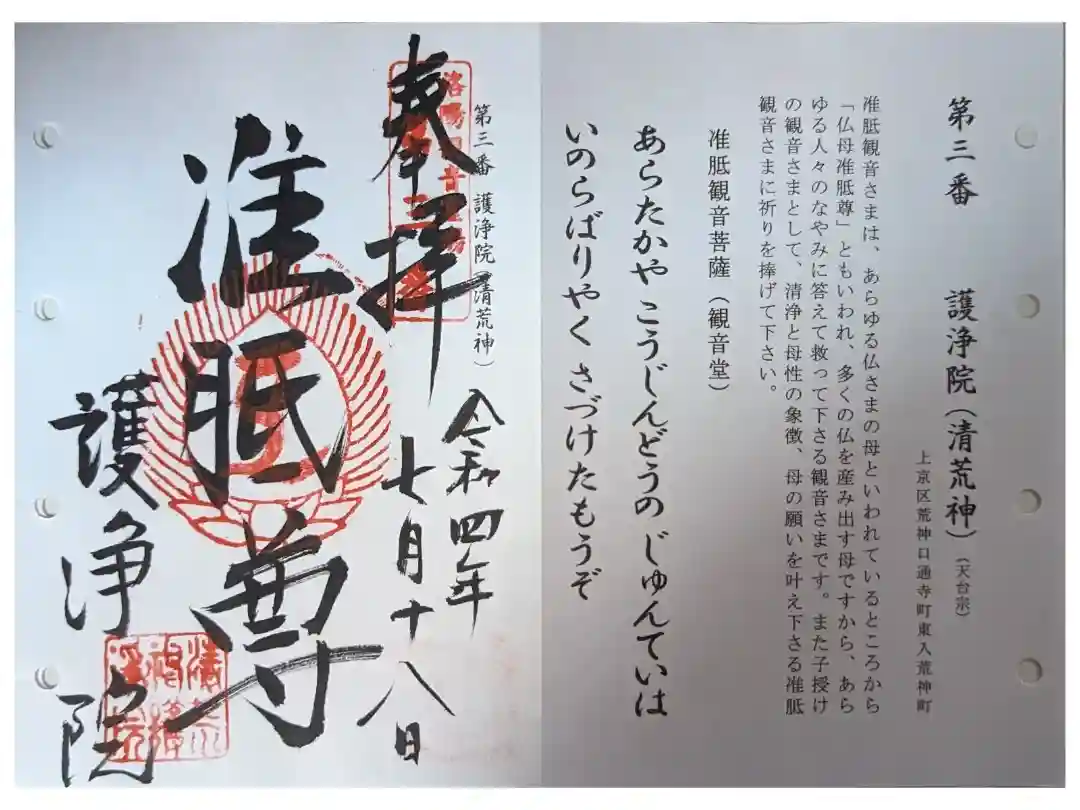 第三番 護浄院(清荒神)(天台宗)
上京区荒神口通寺町東入荒神町
准胝観音さまは、あらゆる仏さまの母といわれているところから
「仏母准胝尊」ともいわれ、多くの仏を産み出す母ですから、あら
ゆる人々のなやみに答えて救って下さる観音さまです。また子授け
の観音さまとして、清浄と母性の象徴、母の願いを叶え下さる准胝
観音さまに祈りを捧げて下さい。
准胝観音菩薩(観音堂)
あらたかや こうじんどうの じゅんていは
いのらばりやく さづけたもうぞ
第三番 護浄院(清荒神)
奉拝
令和四年
七月十八日
准胝尊
護浄院